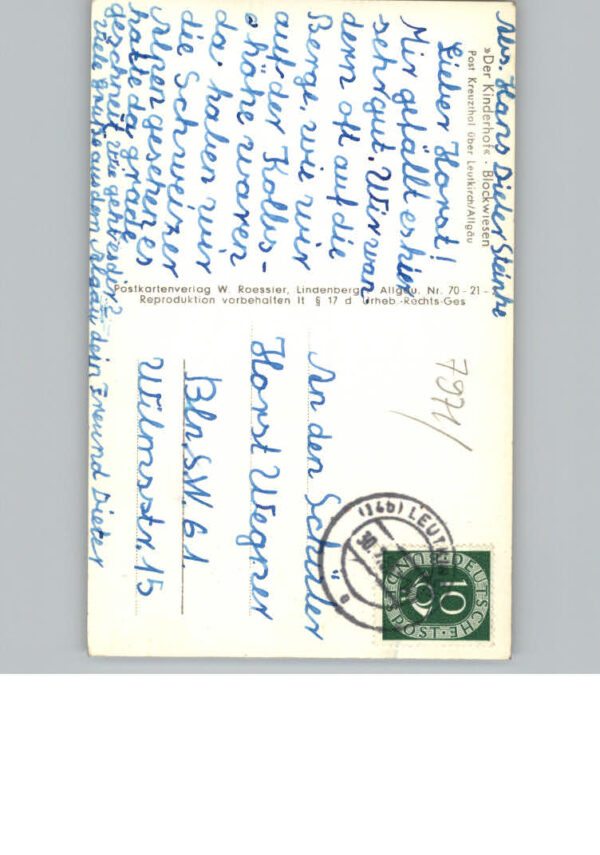 Abs. Hans Dieter Steinke
»Der Kinderhof« · Blockwiesen
Post Kreuzthal über Leutkirch/Allgäu
Lieber Horst!
Mir gefällt es hier
sehr gut. Wir wan-
dern oft auf die
Berge, wie wir
auf der Kollis-
höhe waren
da haben wir
die Schweizer
Alpen gesehen es
hatte da grade
geschneit. Wie geht es dir?
Viele Grüße aus dem Algäu dein Freund Dieter
Postkartenverlag W. Roessler, Lindenberg Allgäu. Nr. 70-21-
Reproduktion vorbehalten lt § 17 d Urheb-Rechts-Ges
7971/
An den Schüler
Horst Wegner
Bln. S.W. 61.
Wilmsstr. 15
(14b) LEUTKI
30.
a
DEUTSCHE
BUNDESPOST
10